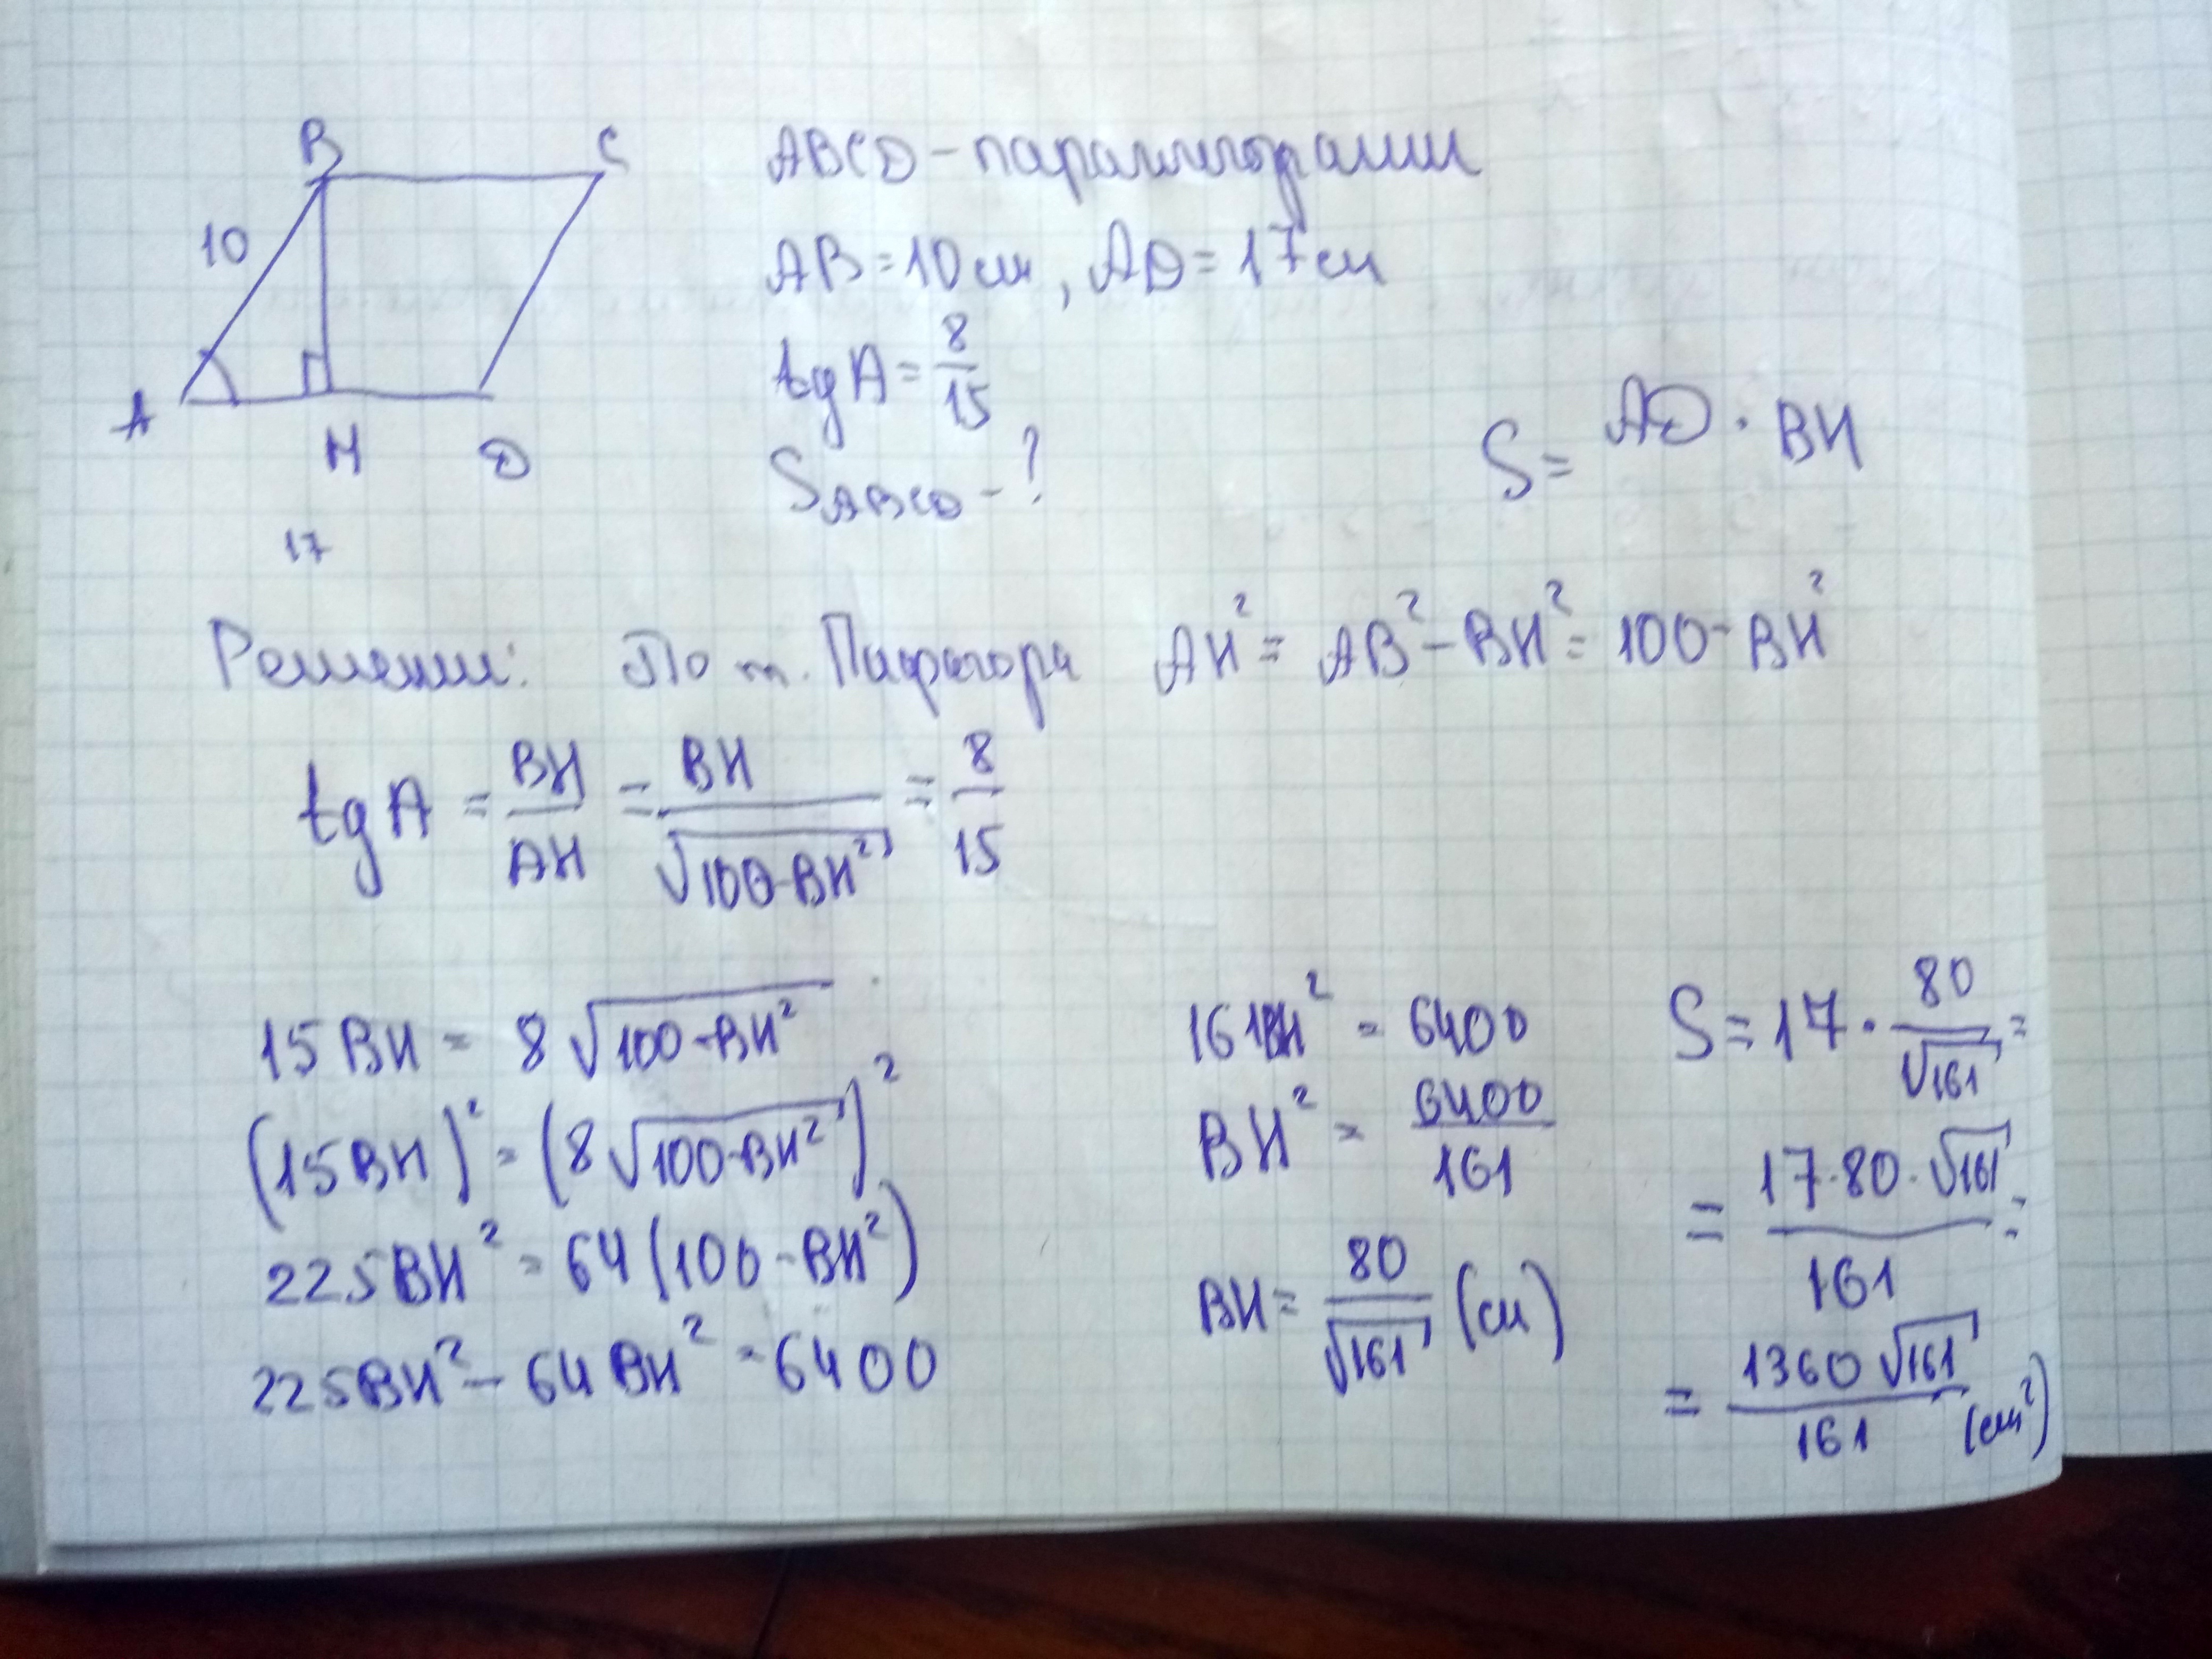 B C
10
A H D
17
ABCD - параллелограмм
AB = 10 см, AD = 17 см
tg A = 8/15
S ABCD - ?
S = AD · BH
Решение: По т. Пифагора AH² = AB² - BH² = 100 - BH²
tg A = BH/AH = BH/√(100-BH²) = 8/15
15 BH = 8√(100-BH²)
(15BH)² = (8√(100-BH²))²
225BH² = 64(100-BH²)
225BH² - 64BH² = 6400
161BH² = 6400
BH² = 6400/161
BH = 80/√161 (см)
S = 17 · 80/√161 =
= 17·80·√161/161 =
= 1360√161/161 (см²)